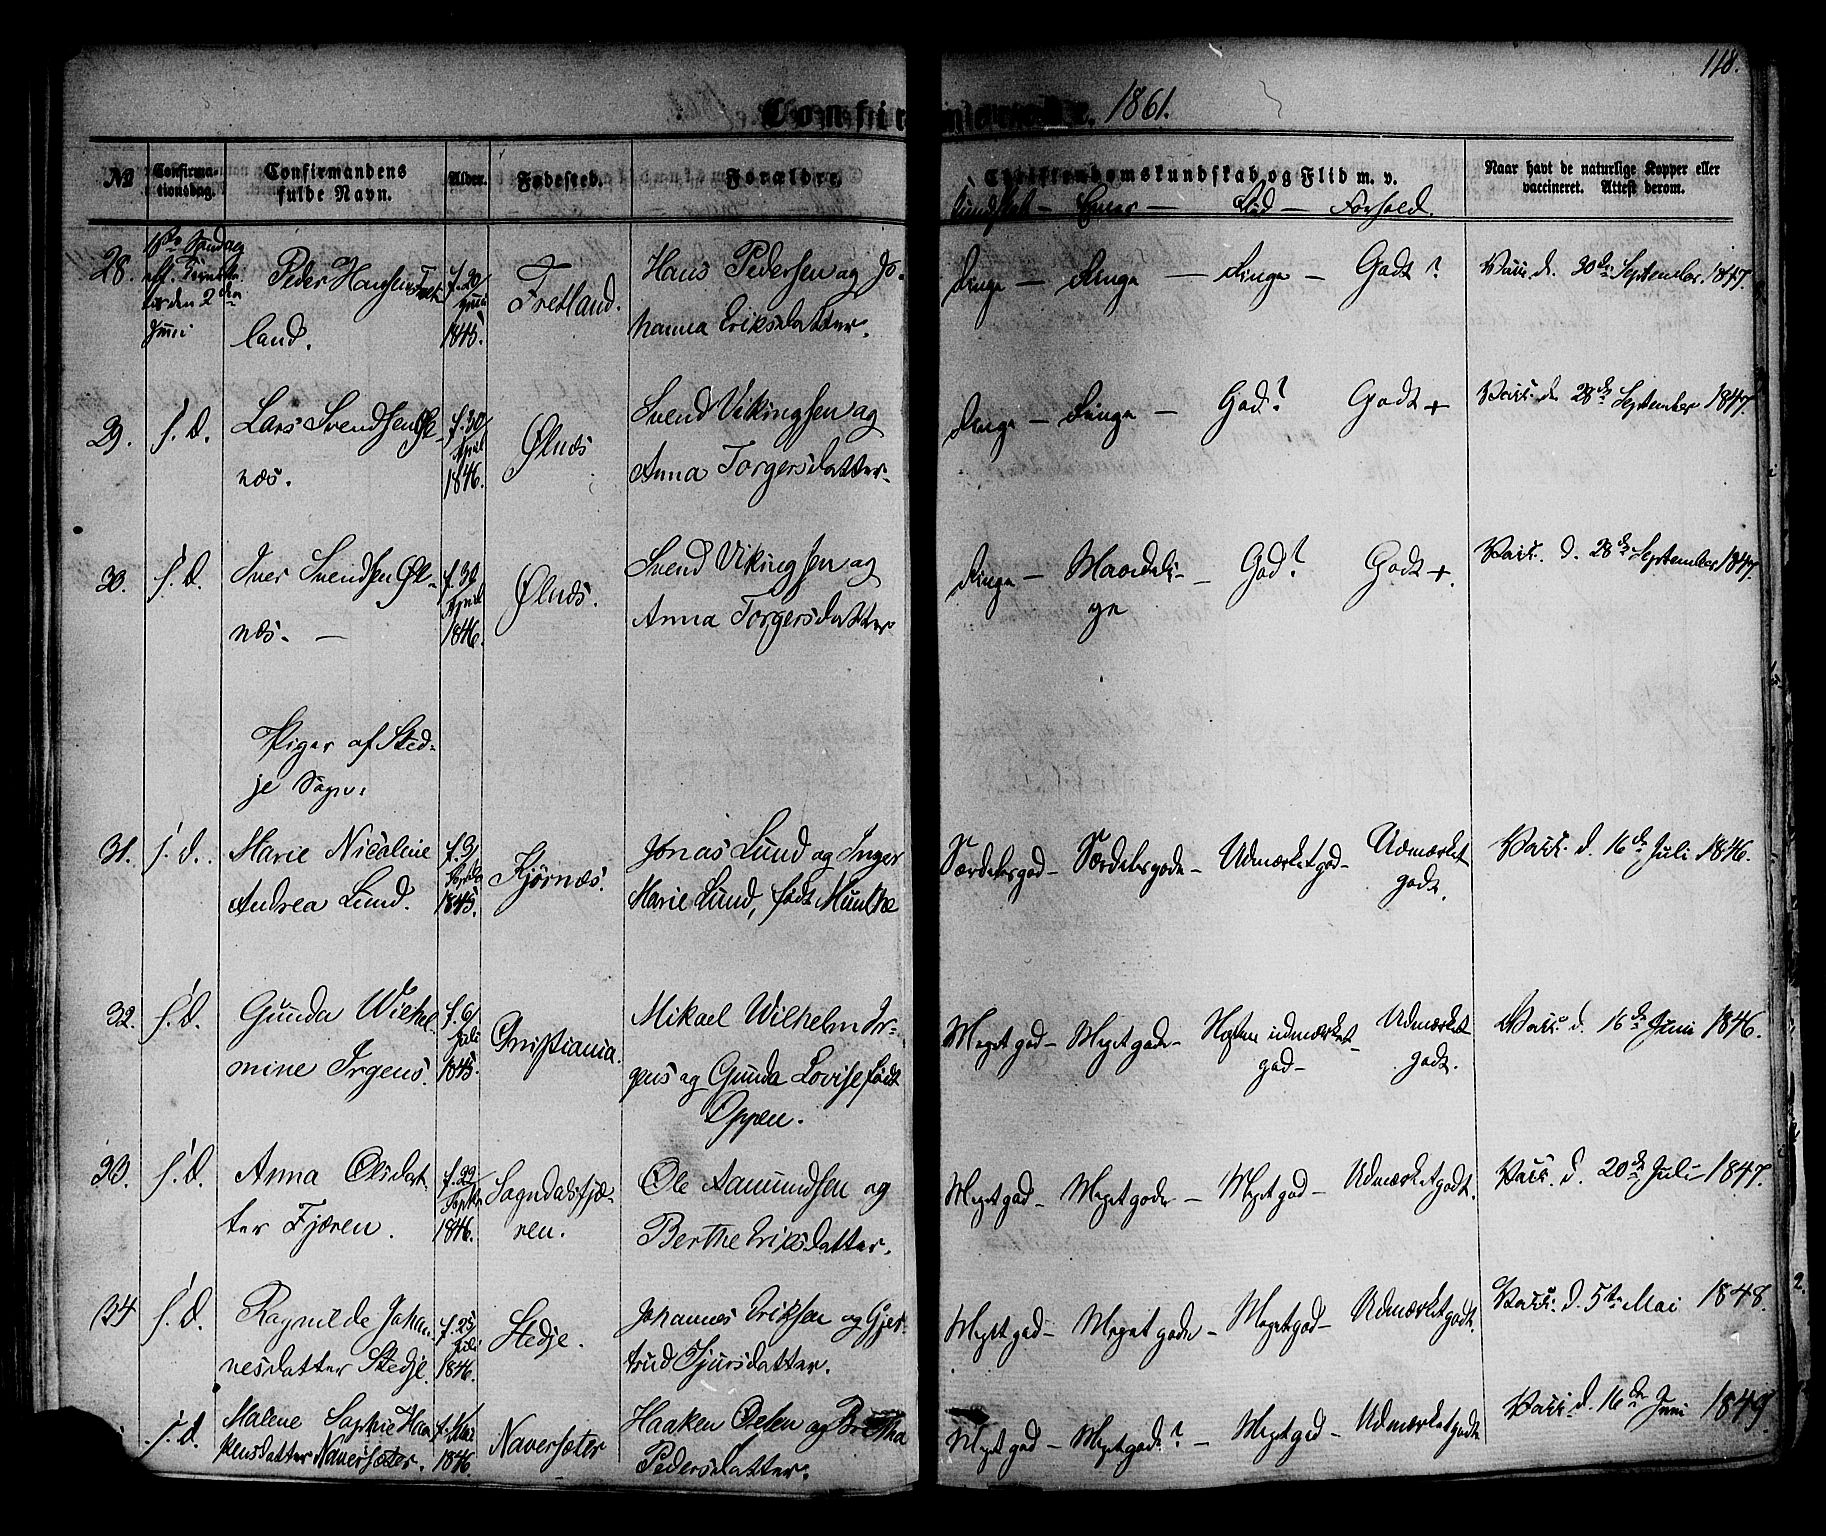 118.
Confirmerede. 1861.
No
Confirma-
tionsdag.
Confirmandens
fulde Navn.
Alder.
Fødested.
Forældre.
Christendomskundskab og Flid m. v.
Kundskab — Evner — Flid — Forhold.
Naar havt de naturlige Kopper eller
vaccineret. Attest derom.
28.
1ste Søndag
eft. Trinita-
tis den 2den
Juni
Peder Hansen Fret-
land.
f. 20
Juni
1845.
Fretland.
Hans Pedersen og Jo-
hanna Eriksdatter.
Ringe — Ringe — Ringe — Godt?
Vacc. d. 30de September 1847.
29. s. d.
Lars Svendsen Øl-
næs.
f. 30
April
1846.
Ølnæs
Svend Vikingsen og
Anna Torgersdatter
Ringe — Ringe — God? Godt +
Vacc. d. 28de September 1847.
30. s. d.
Iver Svendsen Øl-
næs. —
f. 30
April
1846.
Ølnæs.
Svend Vikingsen og
Anna Torgersdatter
Ringe — Maadeli- — God? Godt +.
ge
Vacc. d. 28de September 1847.
Piger af Sted-
je Sogn.
31. s. d.
Marie Nicoline
Andrea Lund.
f. 3
1845.
Kjørnæs.
Jonas Lund og Inger
Marie Lund, født Munthe
Særdelesgod — Særdelesgode — Udmærketgod — Udmærket
godt.
Vacc. d. 16de Juli 1846.
32. s. d.
Gunda Wilhel-
mine Irgens.
f. 6
Juli
1845.
Christiania.
Mikael Wilhelm Ir-
gens og Gunda Lovise født
Oppen.
Meget god — Meget gode — Næsten udmærket- Udmærket
god — godt.
Vacc. d. 16de Juni 1846.
33. s. d.
Anna Olsdat-
ter Fjæren.
f. 22
Septbr
1846.
Sogndalsfjæ-
ren.
Ole Aamundsen og
Berthe Eriksdatter.
Meget god — Meget gode — Meget god — Udmærket godt.
Vacc. d. 20de Juli 1847.
34 s. d.
Ragnilde Johan-
nesdatter Stedje.
f. 25
Juli
1846.
Stedje.
Johannes Eriksen og Gjer-
trud Tjursdatter.
Meget god — Meget gode — Meget god — Udmærket godt.
Vacc. d. 5te Mai 1848.
s. d.
Malene Sophie Haa-
kensdatter Naversæter.
Mai
1846.
Naversæter
Haaken Olsen og Bertha
Pedersdatter.
Meget god — Meget gode? — Meget god — Udmærket godt
Vacc. d. 16de Juni 1849.